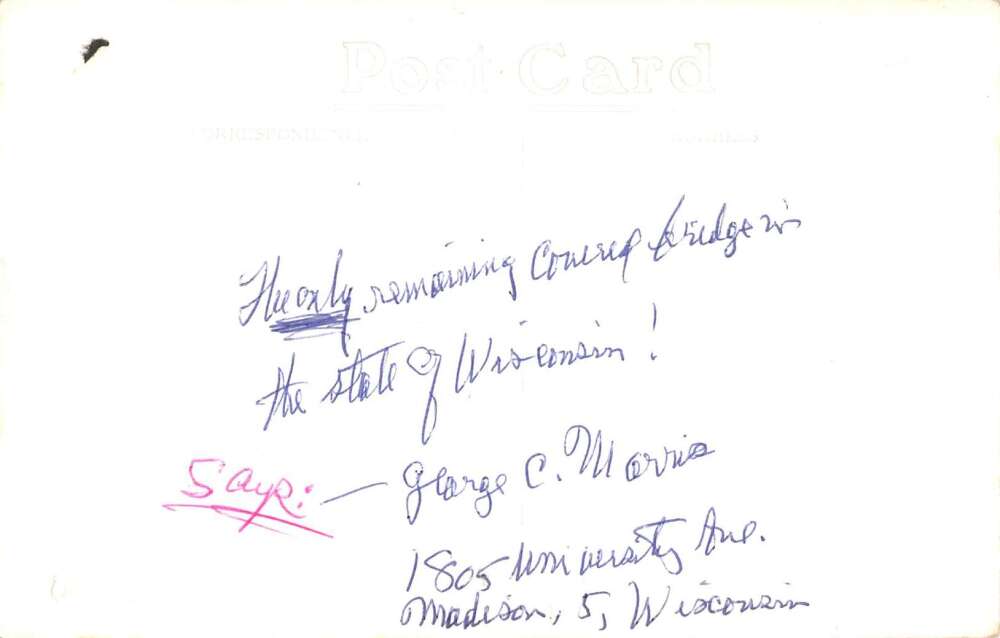 Post Card
CORRESPONDENCE ADDRESS
The only remaining Covered bridge in
the state of Wisconsin!
Says: — George C. Morris
1805 University Ave.
Madison, 5, Wisconsin